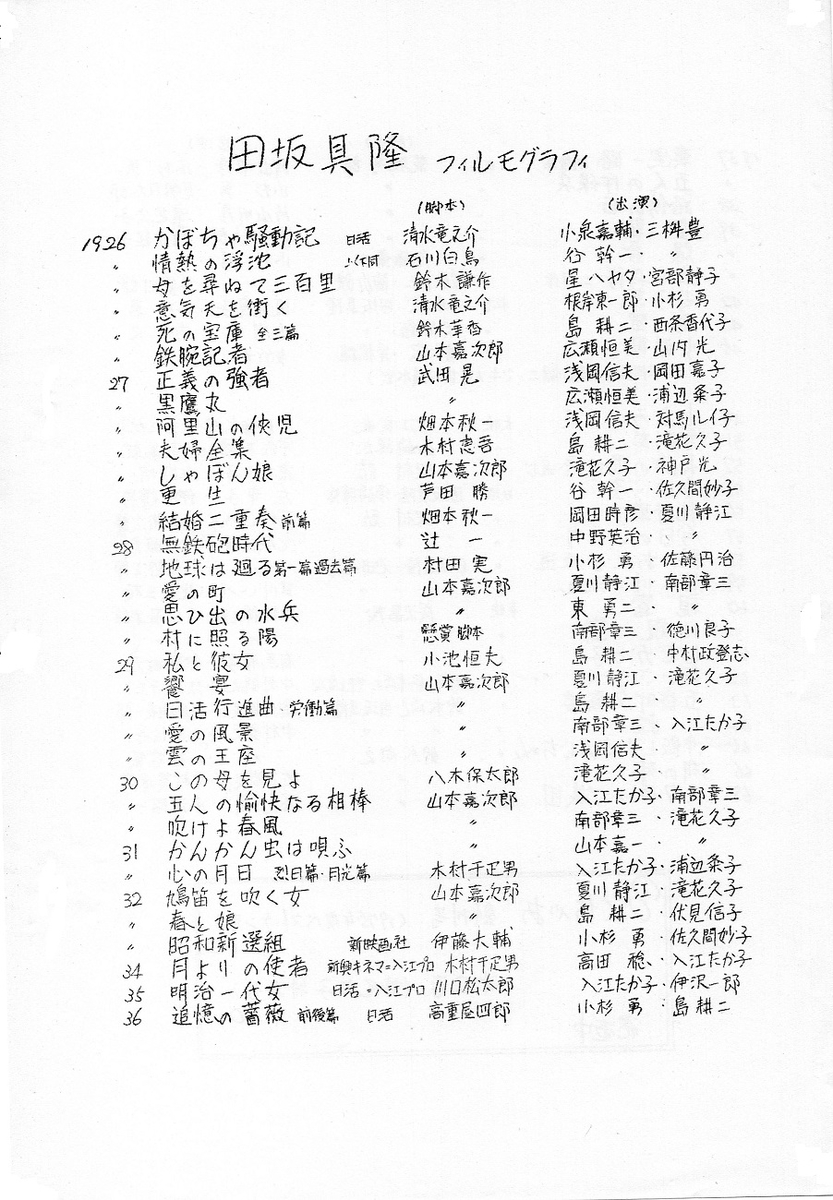 田坂具隆 フィルモグラフィ
(脚本) (出演)
1926 かぼちゃ騒動記 日活 清水竜之介 小泉嘉輔・三桝豊
〃 情熱の浮沈 以下同 石川白鳥 谷幹一・〃
〃 母を尋ねて三百里 鈴木謙作 星ハヤタ・宮部静子
〃 意気天を衝く 清水竜之介 根岸東一郎・小杉勇
〃 死の宝庫 全三篇 鈴木華香 島耕二・西条香代子
〃 鉄腕記者 山本嘉次郎 広瀬恒美・山内光
27 正義の強者 武田晃 浅岡信夫・岡田嘉子
〃 黒鷹丸 〃 広瀬恒美・浦辺粂子
〃 阿里山の侠児 畑本秋一 浅岡信夫・対馬ルイ子
〃 夫婦全集 木村恵吾 島耕二・滝花久子
〃 しゃぼん娘 山本嘉次郎 滝花久子・神戸光
〃 更生 芦田勝 谷幹一・佐久間妙子
〃 結婚二重奏 前篇 畑本秋一 岡田時彦・夏川静江
28 無鉄砲時代 辻一 中野英治・〃
〃 地球は廻る 第一篇過去篇 村田実 小杉勇・佐藤円治
〃 愛の町 山本嘉次郎 夏川静江・南部章三
〃 思ひ出の水兵 〃 東勇二・〃
〃 村に照る陽 懸賞脚本 南部章三・徳川良子
29 私と彼女 小池恒夫 島耕二・中村政登志
〃 饗宴 山本嘉次郎 夏川静江・滝花久子
〃 日活行進曲・労働篇 〃 島耕二・〃
〃 愛の風景 〃 南部章三・入江たか子
〃 雲の王座 〃 浅岡信夫・〃
30 この母を見よ 八木保太郎 滝花久子・〃
〃 五人の愉快なる相棒 山本嘉次郎 入江たか子・南部章三
〃 吹けよ春風 〃 南部章三・滝花久子
31 かんかん虫は唄ふ 〃 山本嘉一・〃
〃 心の月日 烈日篇・月光篇 木村千疋男 入江たか子・浦辺粂子
32 鳩笛を吹く女 山本嘉次郎 夏川静江・滝花久子
〃 春と娘 〃 島耕二・伏見信子
〃 昭和新選組 新映画社 伊藤大輔 小杉勇・佐久間妙子
34 月よりの使者 新興キネマ=入江プロ 木村千疋男 高田稔・入江たか子
35 明治一代女 日活=入江プロ 川口松太郎 入江たか子・伊沢一郎
36 追憶の薔薇 前後篇 日活 高重屋四郎 小杉勇・島耕二